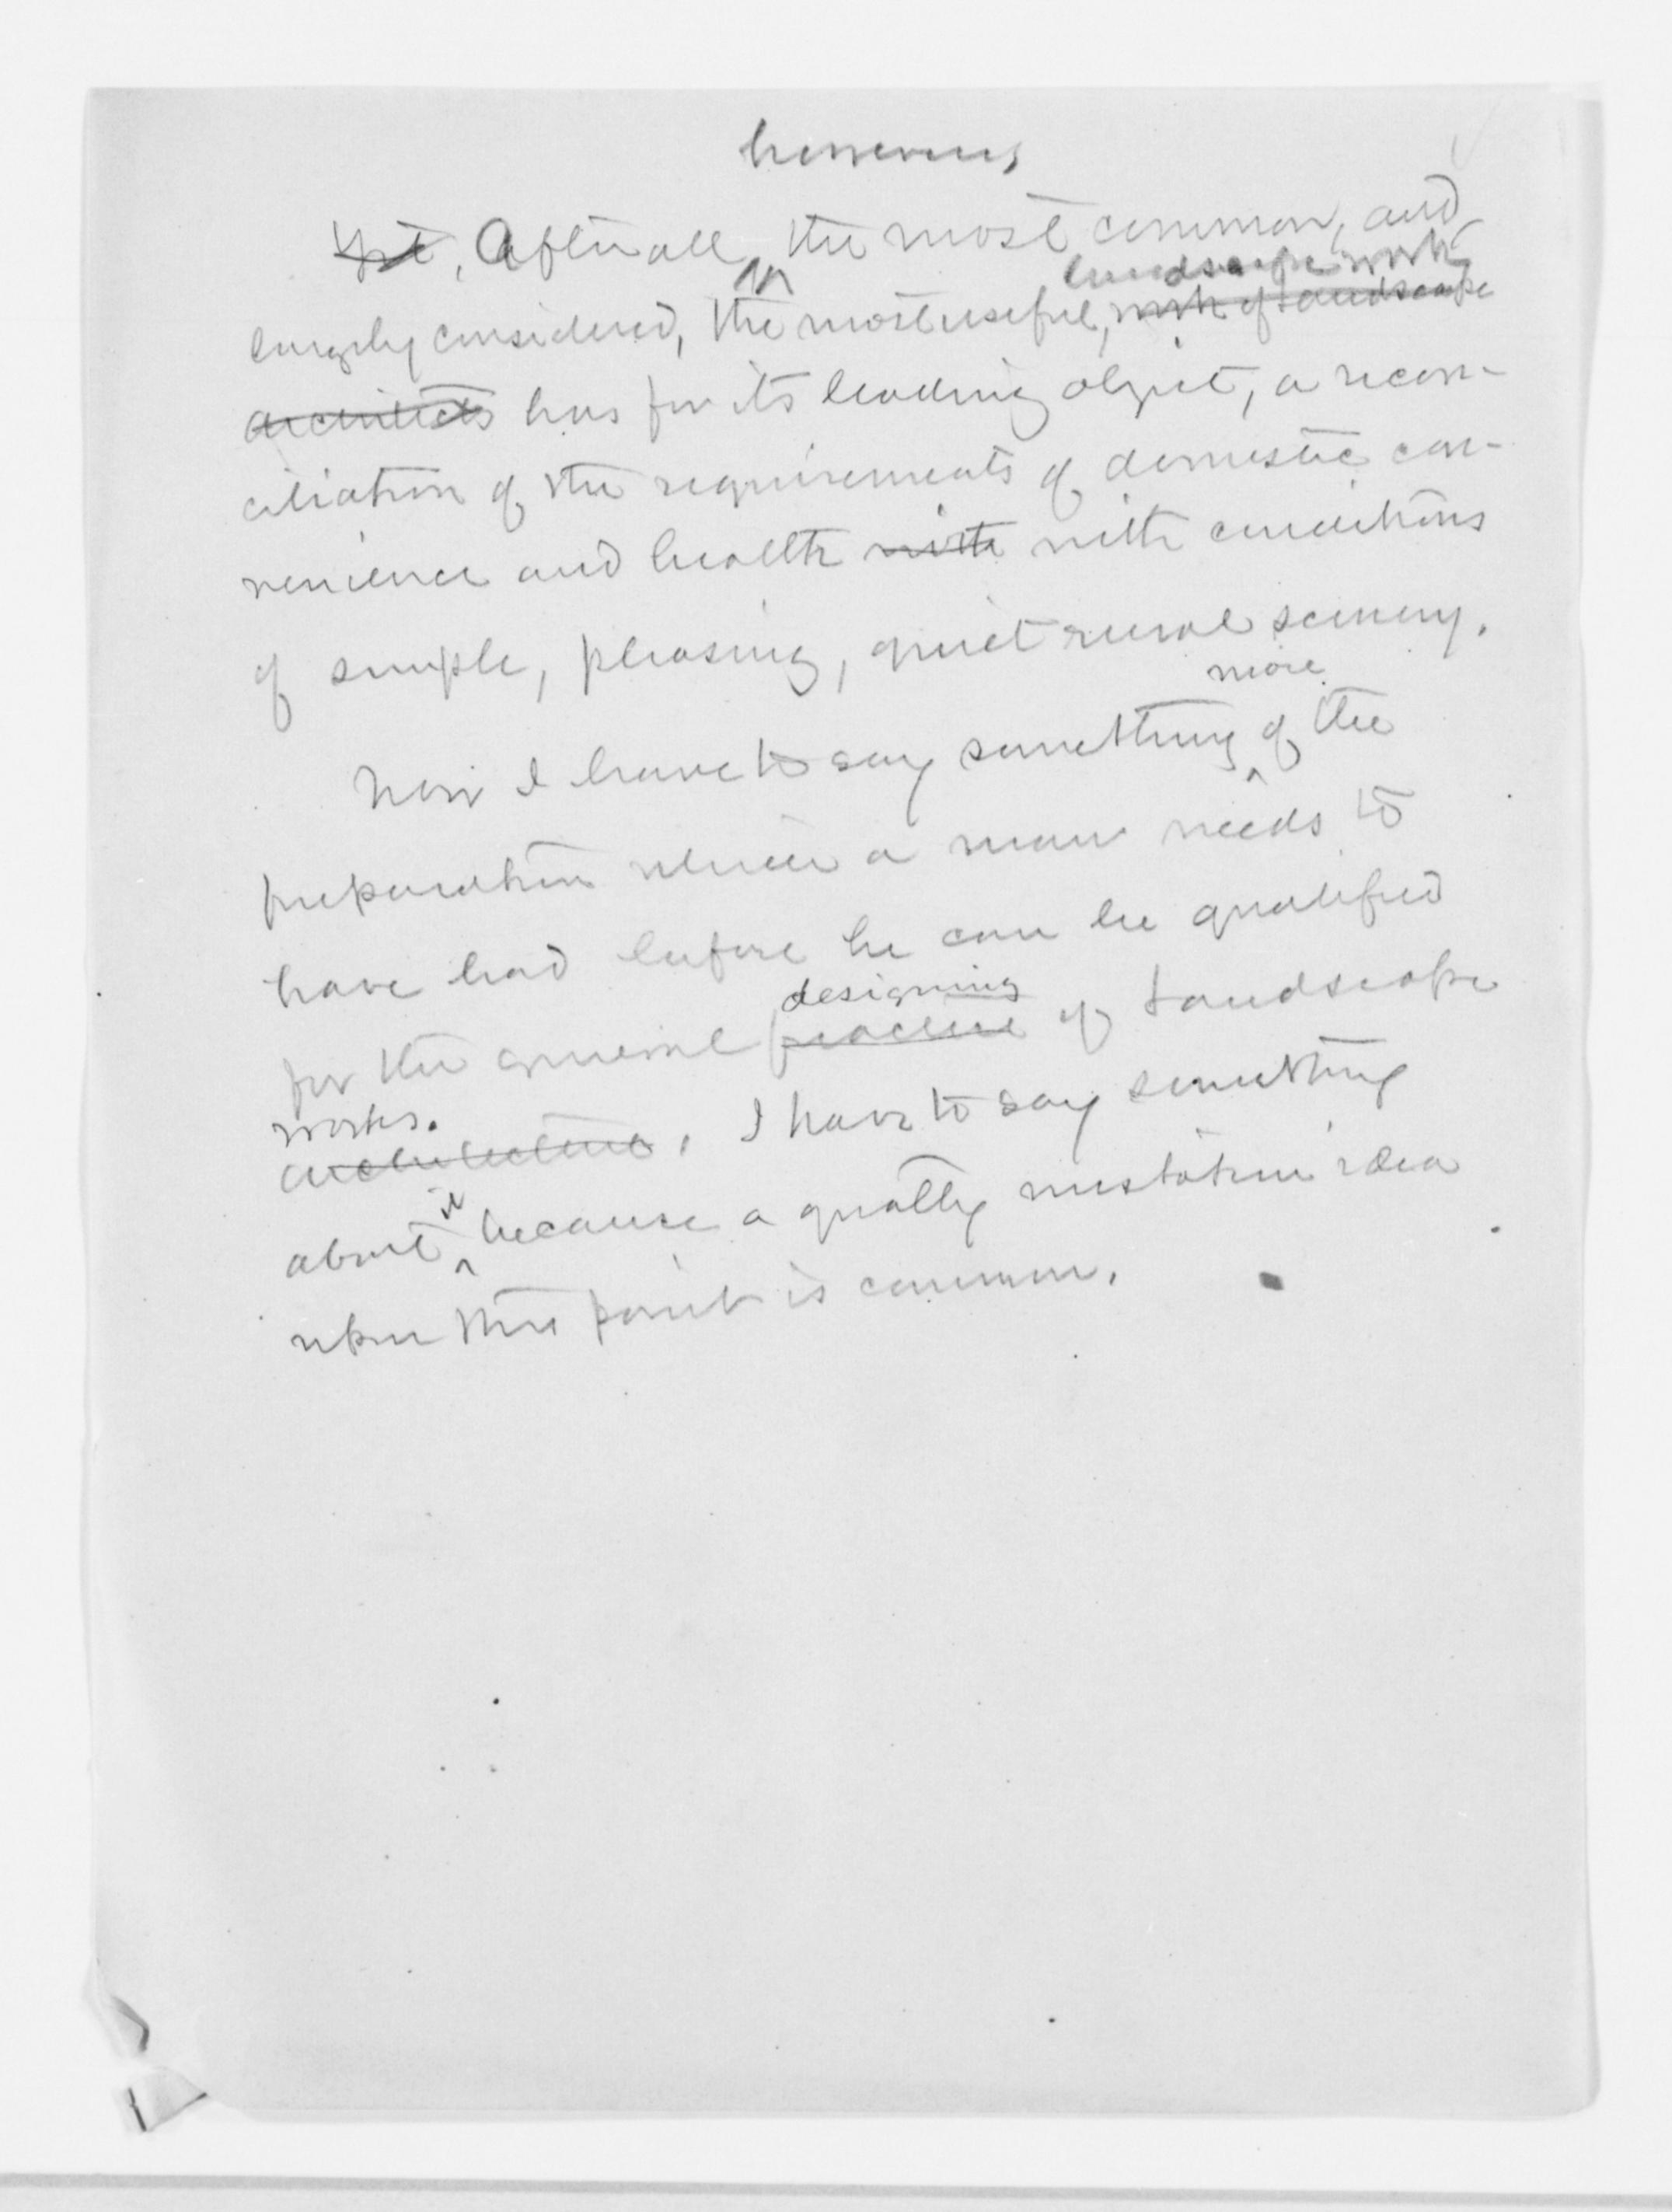 however,
Yet, After all, the most common, and
landscape work
largely considered, the most useful, work of Landscape
architects has for its leading object, a recon-
ciliation of the requirements of domestic con-
venience and health with with conditions
of simple, pleasing, quiet rural scenery.
more
Now I have to say something of the
preparation which a man needs to
have had before he can be qualified
designing
for the general practice of Landscape
works.
architecture, I have to say something
it
about because a greatly mistaken idea
upon this point is common.